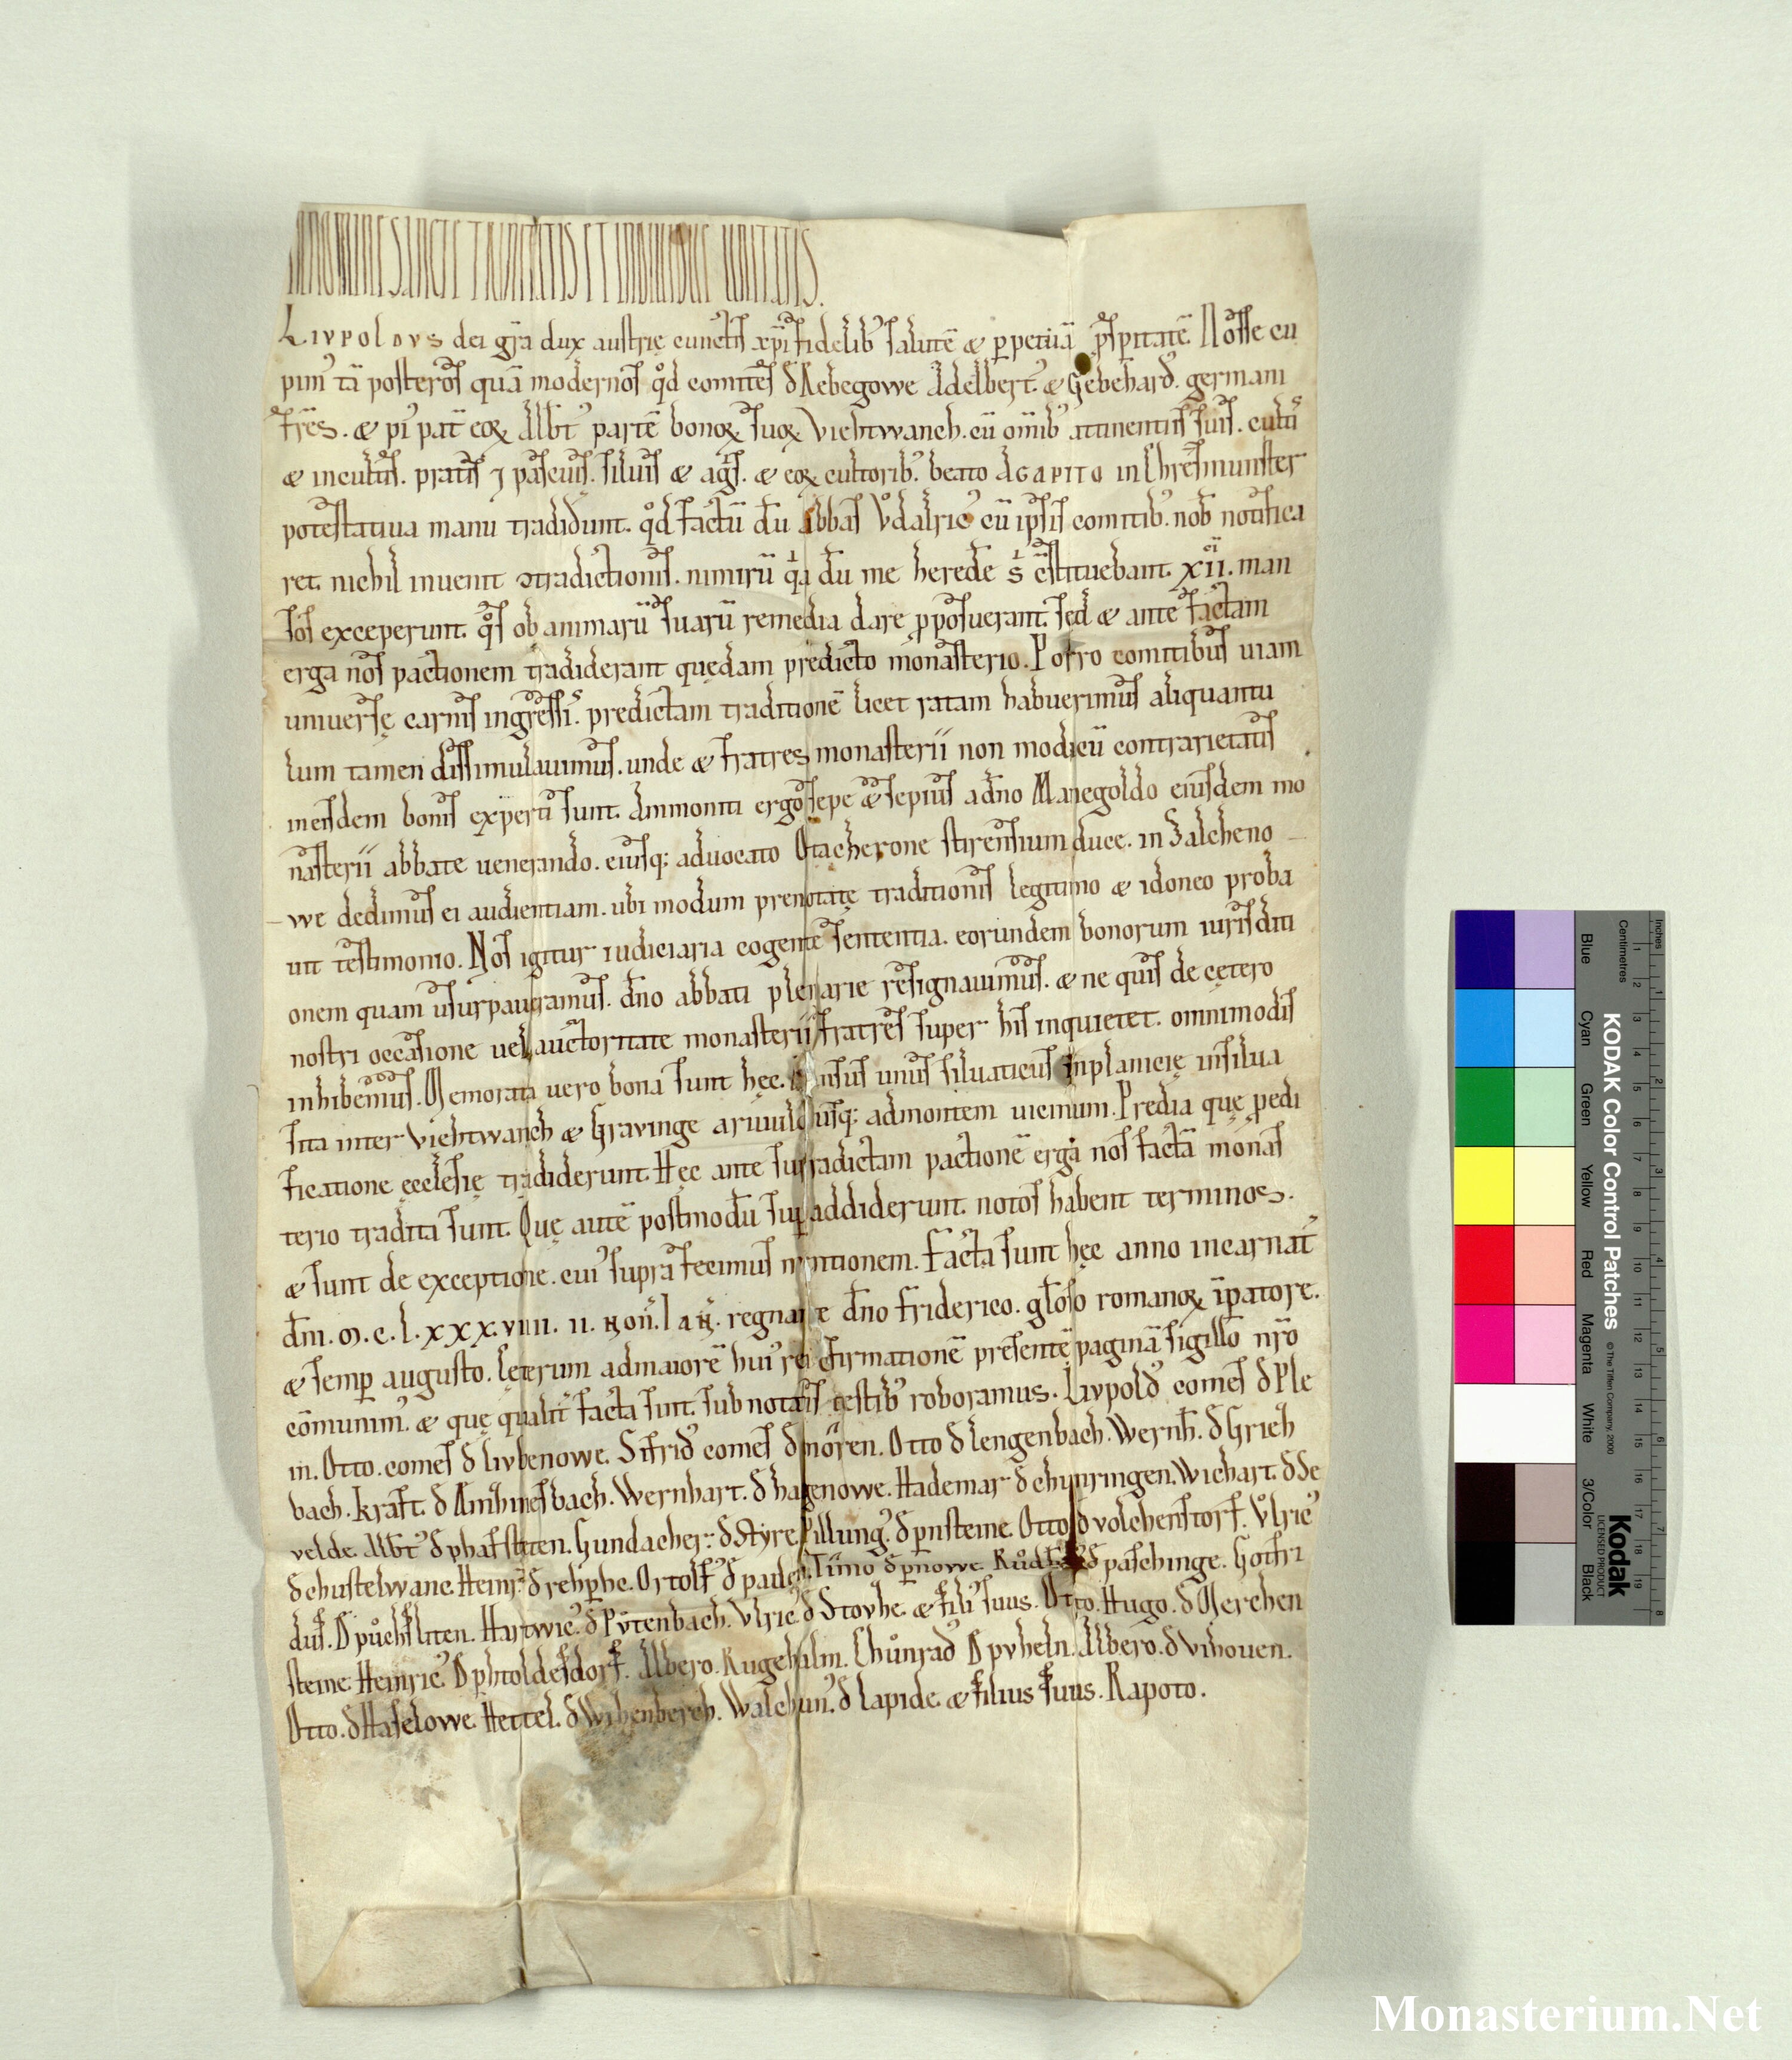 IN NOMINE SANCTE TRINITATIS ET INDIVIDUE UNITATIS.
Livpoldvs dei gr̄a dux austrię cunctis xp̄i fidelib' salutē & ꝑpetuā ꝓsꝑitatē. Nosse cu
pim' tā posteros quā modernos qͦd comites đ Rebegowe Adelbert' & Gebehard'. germani
fr̄es. & pi' pat̄ eoꝝ Albt̄' partē bonoꝝ suoꝝ Viehtwanch. cū om̄ib' attinentiis suis. cultis
& incultis. pratis ⁊ pascuis. siluis & agͥs. & eoꝝ cultorib'. beato AGAPITO in Chremsmunster
potestatiua manu tradidunt. qͦd factū dū abbas Vͦdalric' cū ipsis comitib'. nob̄ notifica
ret. nichil inuenit ꝯtradictionis. nimirū qͥa dū me herede s̄ ꝯstituebant. XII. man
sos exceperunt. qͦs ob animarū suarū remedia dare ꝓposuerant. sed & ante factam
erga nos pactionem tradiderant quędam predicto monasterio. Porro comitibus uiam
uniuersę carnis ingressis. predictam traditionē licet ratam habuerimus aliquantu
lum tamen dissimulauimus. unde & fratres monasterii non modicū contrarietatis
in eisdem bonis experti sunt. Ammoniti ergo sepe & sepius a dn̄o Manegoldo eiusdem mo
nasterii abbate uenerando. eiusq: aduocato Otacherone stirensium duce. in Valcheno
we dedimus ei audientiam. ubi modum prenotatę traditionis legitimo & idoneo proba
uit testimonio. Nos igitur iudiciaria cogente sententia. eorundem bonorum iurisditi
onem quam usurpaueramus. dn̄o abbati plenarie resignauimus. & ne quis de cętero
nostri occasione uel auctoritate monasterii fratres super his inquietet. omnimodis
inhibemus. Memorata uero bona sunt hęc. mansus unus siluaticus in planicię in silua
sita inter Viehtwanch & Gravinge a riuulo usq: ad montem uicinum. Predia quę ꝑ edi
ficatione ęcclesię tradiderunt. Hęc ante supradictam pactionē erga nos factā monas
terio tradita sunt. Quę autē postmodū supaddiderunt. notos habent terminos.
& sunt de exceptione. cui' supra fecimus mentionem. Facta sunt hęc anno incarnat̄
dn̄i. M. C. L. XXX. VIIII. II. Non̄. Ian̄. regnante dn̄o Friderico. glōso romanoꝝ īpatore.
& semꝑ augusto. Ceterum ad maiorē hui' rei ꝯfirmationē presentē paginā sigillo nr̄o
cōmunim'. & quę qualit̄ facta sunt. subnotatis testib' roboramus. Livpold' comes đ Ple
in. Otto. comes đ Livbenowe. Sifrid' comes đ mören. Otto đ lengenbach. Wernh̄. đ Grieh
bach. Kraft. đ Amihinesbach. Wernhart. đ hagenowe. Hademar đ chunringen. Wichart. đ Se
velde. Albt̄' đ phafstetin. Gundacher. đ Styre. Pillung' đ ꝑnsteine. Otto đ volchenstorf. Vͦlric'
đ chustelwanc. Heinr̄. đ rehꝑhe. Ortolf đ paden. Timo đ ꝑnowe. Rͦudbt' đ paschinge. Gotfri
dus. đ pͦuchsliten. Hartwic' đ Pvtenbach. Vlric' đ Stovhe. & fili' suus. Otto. Hugo. đ Merchen
steine. Heinric' đ ꝑhtoldesdorf. Albero. Rugehalm. Chͦunrad' đ pvheln. Albero. đ Vihouen.
Otto. đ Haselowe. Hettel. đ Wihenberch. Walchun' đ lapide. & filius suus. Rapoto.
Monasterium.Net
KODAK Color Control Patches
© The Tiffen Company, 2000
Kodak
LICENSED PRODUCT
Blue
Cyan
Green
Yellow
Red
Magenta
White
3/Color
Black
Inches
Centimetres